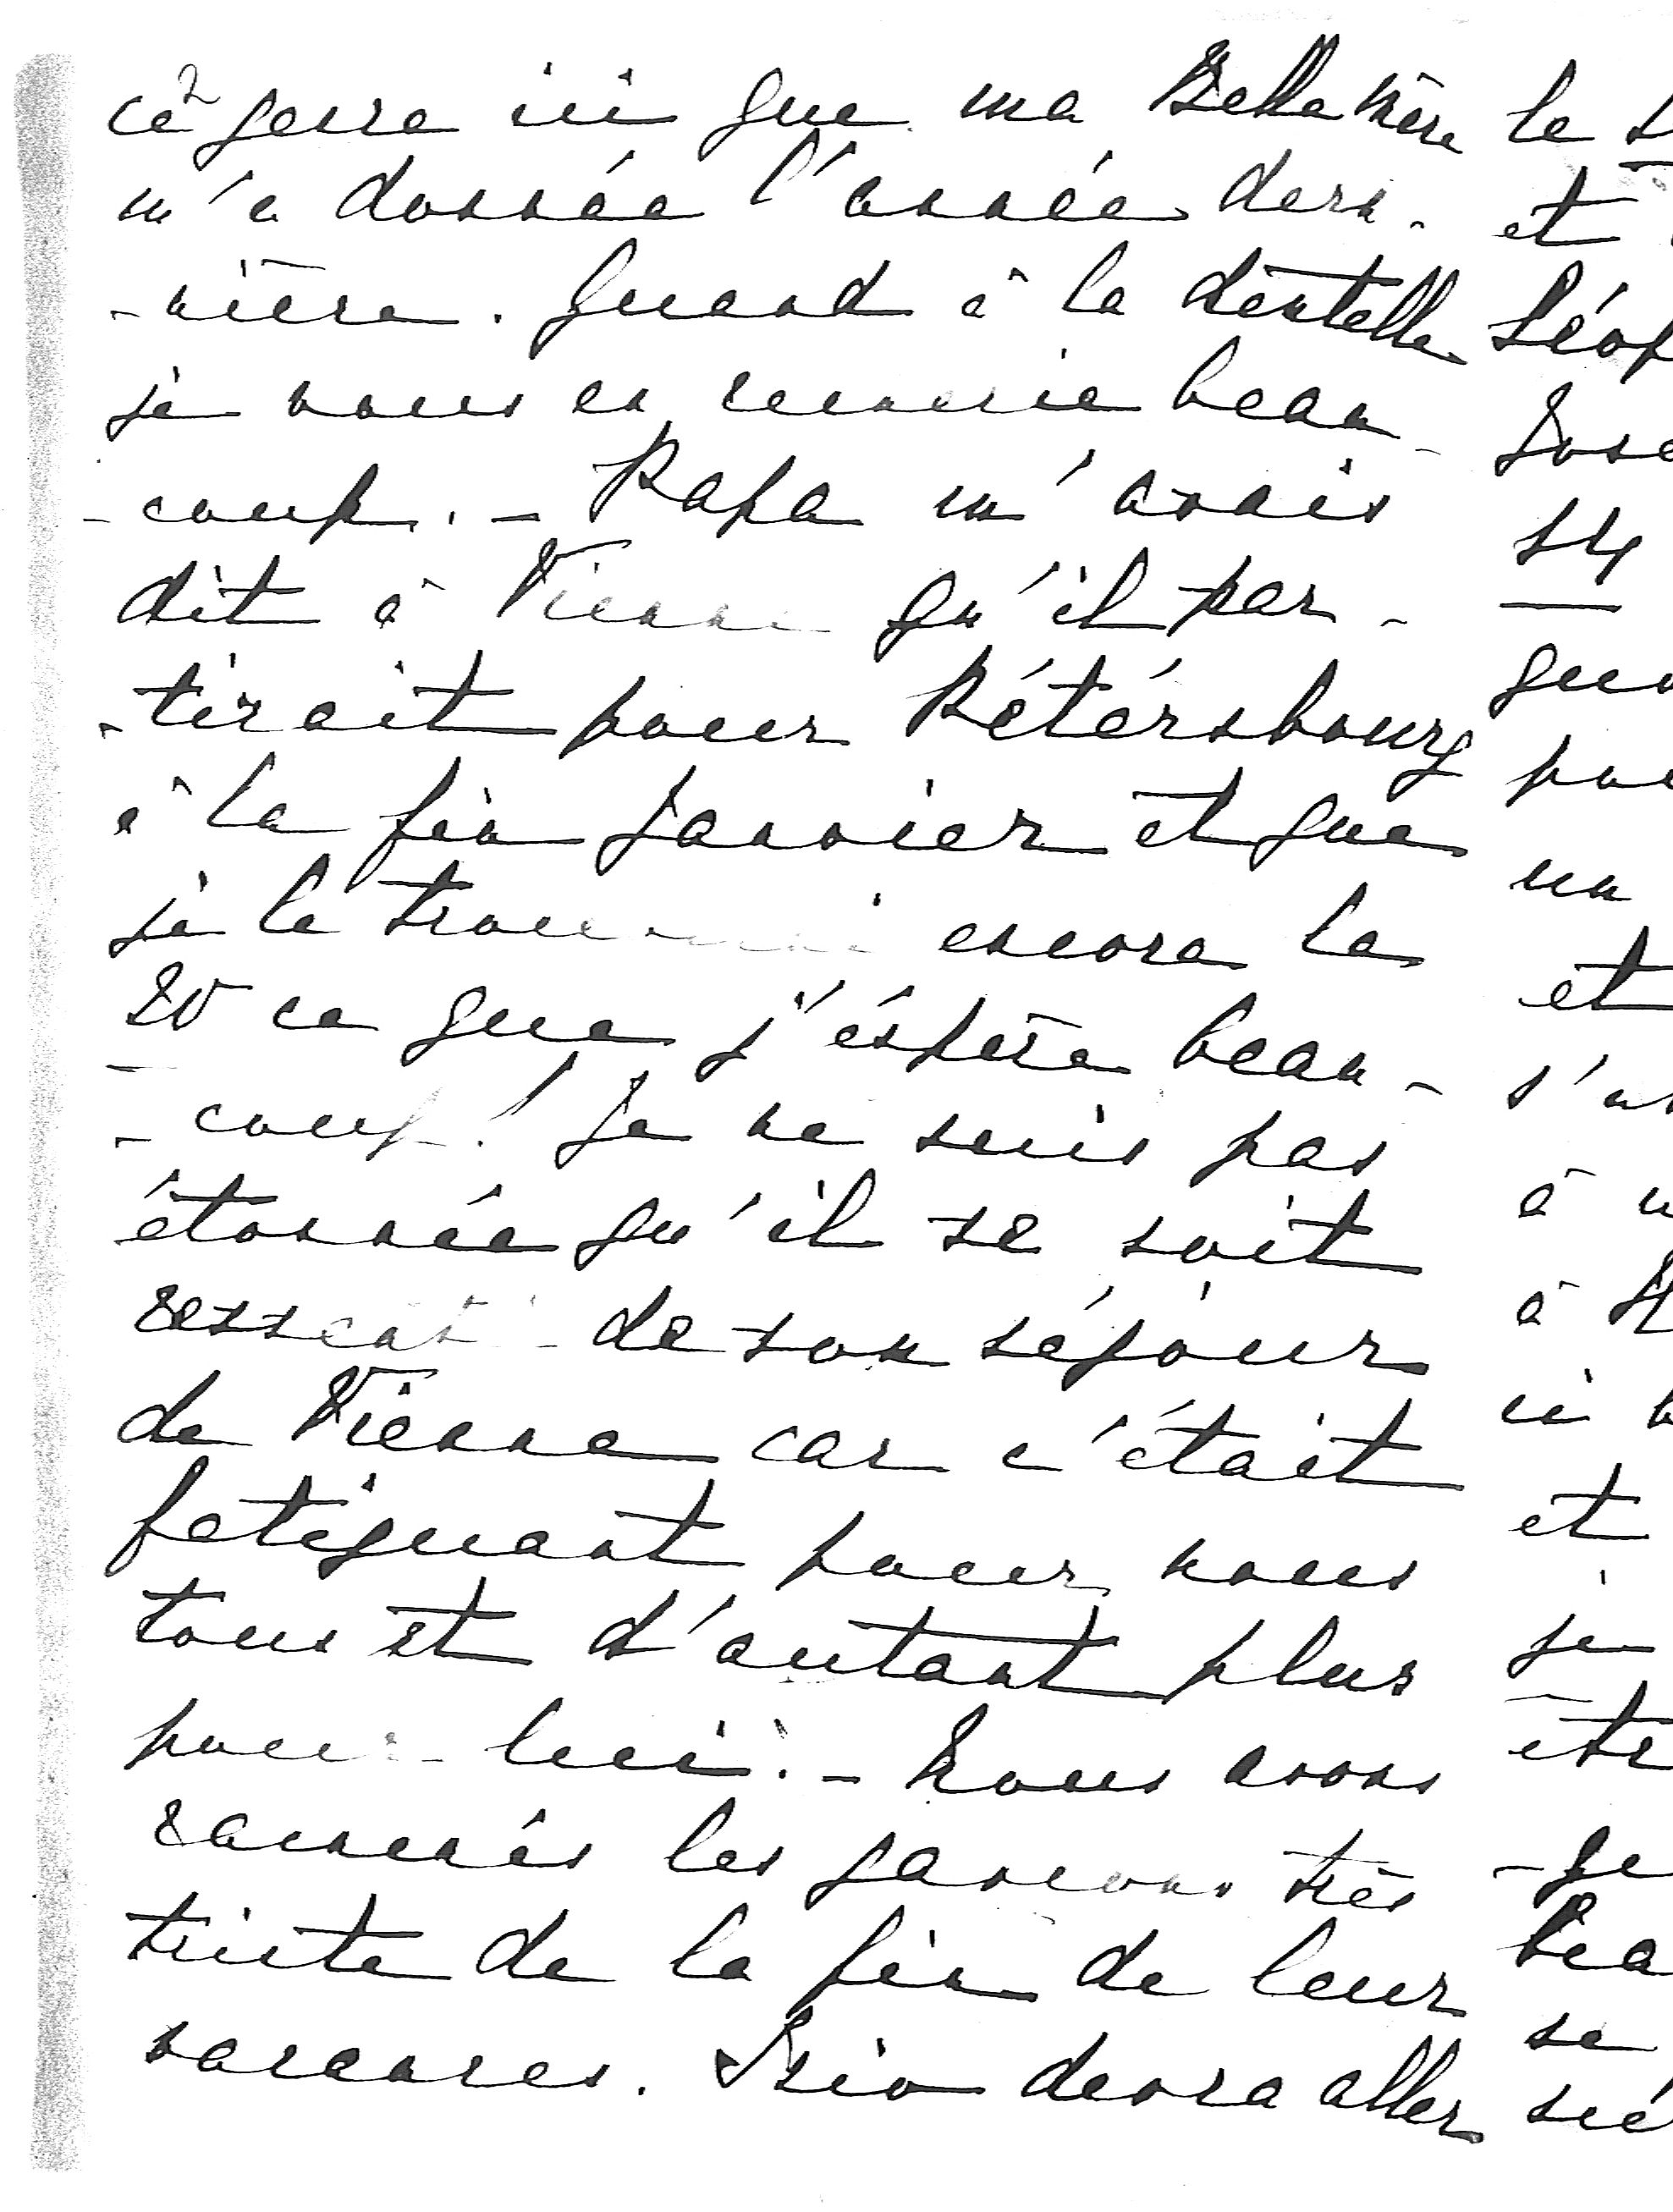 ce genre ici que ma Belle Mère
m'a donnée l'année der-
-nière. Quand à la dentelle
je vous en remercie beau-
-coup. - Papa m'avais
dit à Vienne qu'il par-
-tirait pour Pétérsbourg
à la fin Janvier et que
je le trouverai encore le
20 ce que j'éspère beau-
-coup! Je ne suis pas
étonnée qu'il se soit
ressenti de son séjour
de Vienne car c'était
fatiguant pour nous
tous et d'autant plus
pour lui. - Nous avons
ramenés les garçons très
triste de la fin de leur
vacances. devra aller
le
et
Léop
José
14
que
pou
un
et
s'
à
à
ici
et
je
êtr
-ge
Bea
se
sié